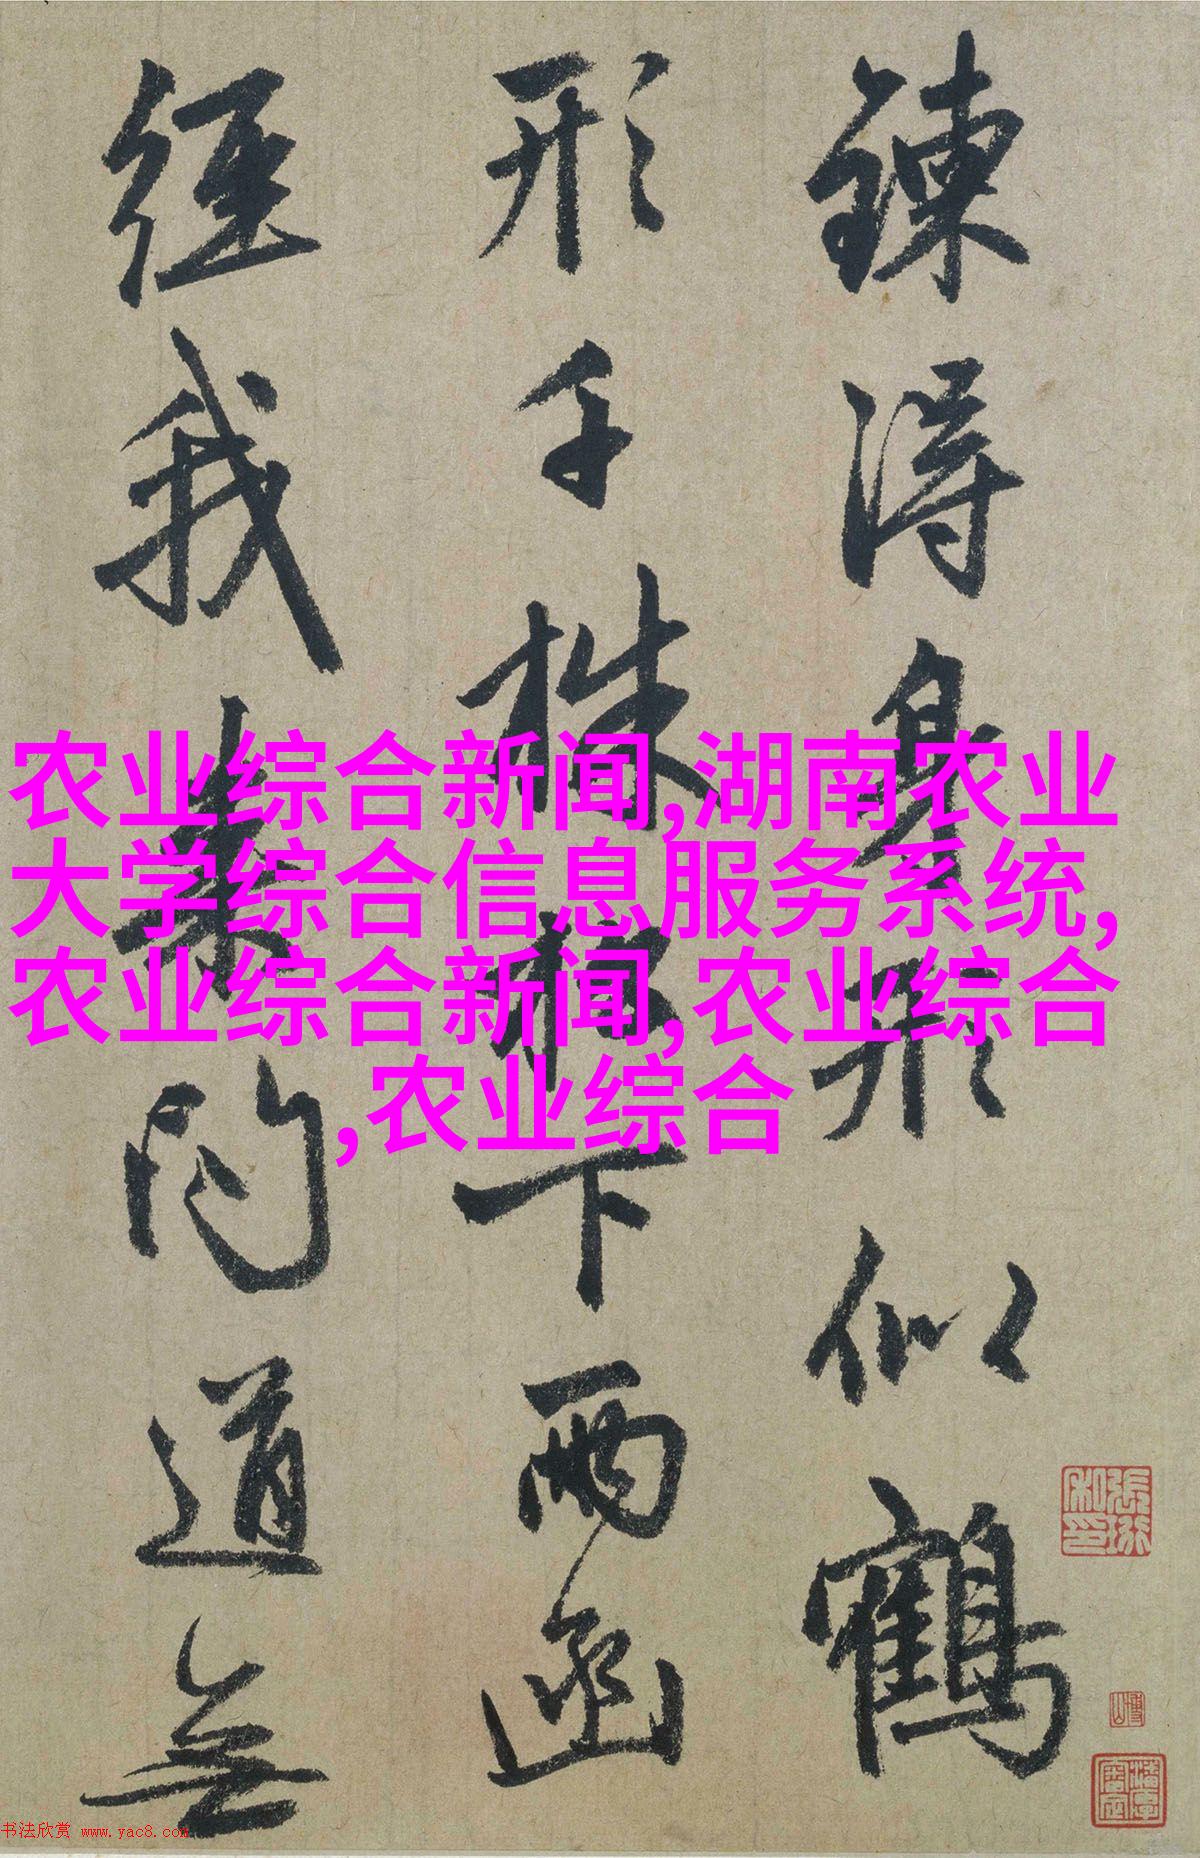 鍊得身形似鶴
形千株松下兩函
經我來問道無
农业综合新闻,湖南农业
大学综合信息服务系统,
农业综合新闻,农业综合
,农业综合
书法欣赏 www.yac8.com